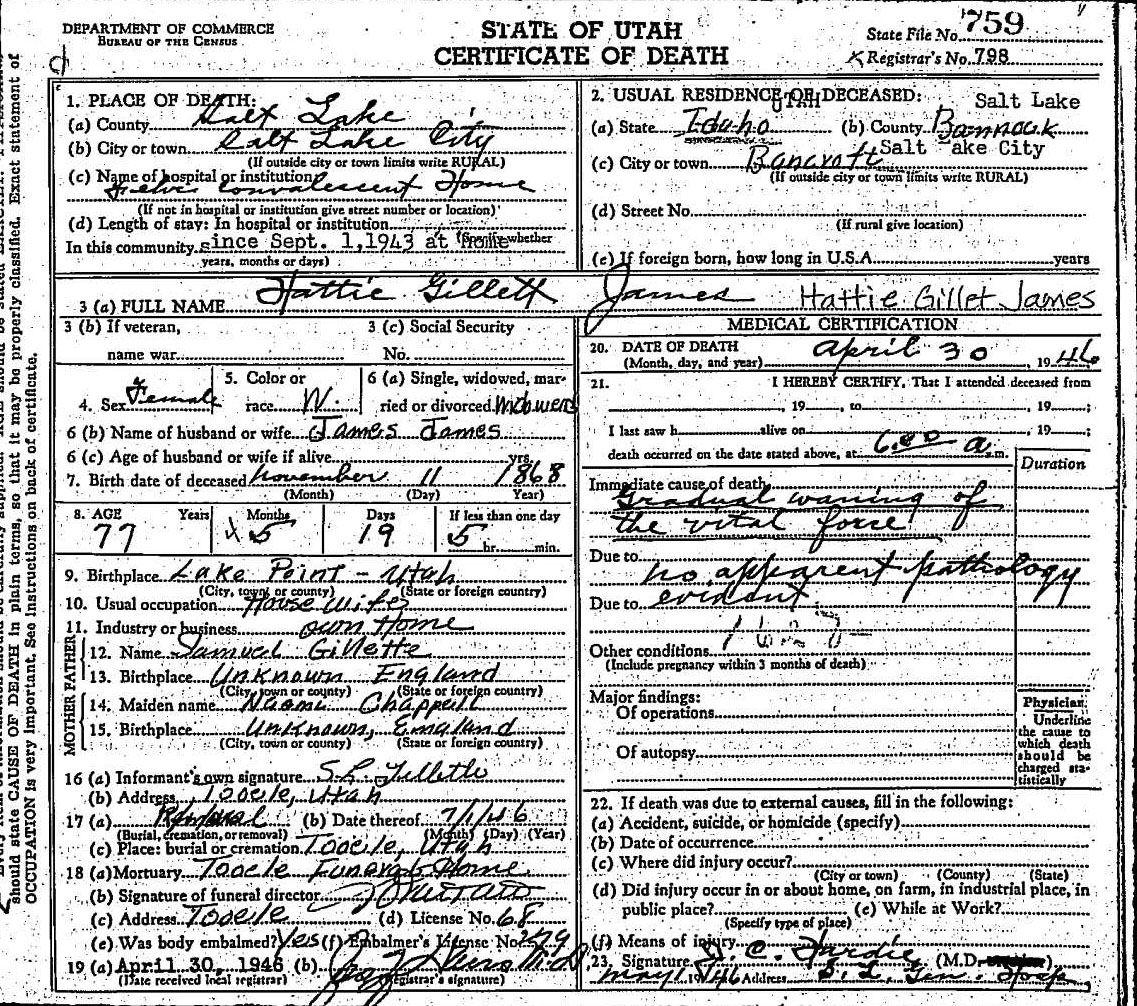 DEPARTMENT OF COMMERCE
BUREAU OF THE CENSUS
STATE OF UTAH
CERTIFICATE OF DEATH
State File No. 759
Registrar's No. 798
1. PLACE OF DEATH:
(a) County Salt Lake
(b) City or town Salt Lake City
(If outside city or town limits write RURAL)
(c) Name of hospital or institution
Convalescent Home
(If not in hospital or institution give street number or location)
(d) Length of stay: In hospital or institution
In this community since Sept. 1,1943 at home whether
years, months or days)
2. USUAL RESIDENCE OF DECEASED:
UTAH Salt Lake
(a) State Idaho (b) County Bannock
Salt Lake City
(c) City or town Bancroft
(If outside city or town limits write RURAL)
(d) Street No.
(If rural give location)
(e) If foreign born, how long in U.S.A. years
3 (a) FULL NAME Hattie Gillett James Hattie Gillet James
3 (b) If veteran,
name war
3 (c) Social Security
No.
4. Sex Female
5. Color or
race W.
6 (a) Single, widowed, mar-
ried or divorced Widowed
6 (b) Name of husband or wife James James
6 (c) Age of husband or wife if alive yrs.
7. Birth date of deceased November 11 1868
(Month) (Day) Year)
8. AGE Years Months Days If less than one day
77 5 19 5 hr. min.
9. Birthplace Lake Point - Utah
(City, town, or county) (State or foreign country)
10. Usual occupation House Wife
11. Industry or business own Home
MOTHER FATHER
12. Name Samuel Gillette
13. Birthplace Unknown England
(City, town or county) (State or foreign country)
14. Maiden name Naomi Chappell
15. Birthplace Unknown, England
(City, town or county) (State or foreign country)
16 (a) Informant's own signature S.L. Gillette
(b) Address Tooele, Utah
17 (a) Removal (b) Date thereof 7/1/46
(Burial, cremation, or removal) (Month) (Day) (Year)
(c) Place: burial or cremation Tooele, Utah
18 (a) Mortuary Tooele Funeral Home
(b) Signature of funeral director
(c) Address Tooele (d) License No. 68
(e) Was body embalmed? Yes (f) Embalmer's License No. 279
19 (a) April 30, 1946 (b)
(Date received local registrar) Registrar's signature)
MEDICAL CERTIFICATION
20. DATE OF DEATH April 30 1946
(Month, day, and year)
21. I HEREBY CERTIFY, That I attended deceased from
, 19 , to , 19 ;
I last saw h alive on , 19 ;
death occurred on the date stated above, at 6:00 a. m.
Duration
Immediate cause of death
Gradual waning of
the vital force
Due to
no apparent pathology
Due to evident
162
Other conditions
(Include pregnancy within 3 months of death)
Major findings:
Of operations
Of autopsy
Physician
Underline
the cause to
which death
should be
charged sta-
tistically
22. If death was due to external causes, fill in the following:
(a) Accident, suicide, or homicide (specify)
(b) Date of occurrence
(c) Where did injury occur?
(City or town) (County) (State)
(d) Did injury occur in or about home, on farm, in industrial place, in
public place? (e) While at Work?
(Specify type of place)
(f) Means of injury
23. Signature C. Hardie (M.D. )
May 1 1946 Address S. L. Gen. Hosp.
should state CAUSE OF DEATH in plain terms, so that it may be properly classified. Exact statement of
OCCUPATION is very important. See Instructions on back of certificate.